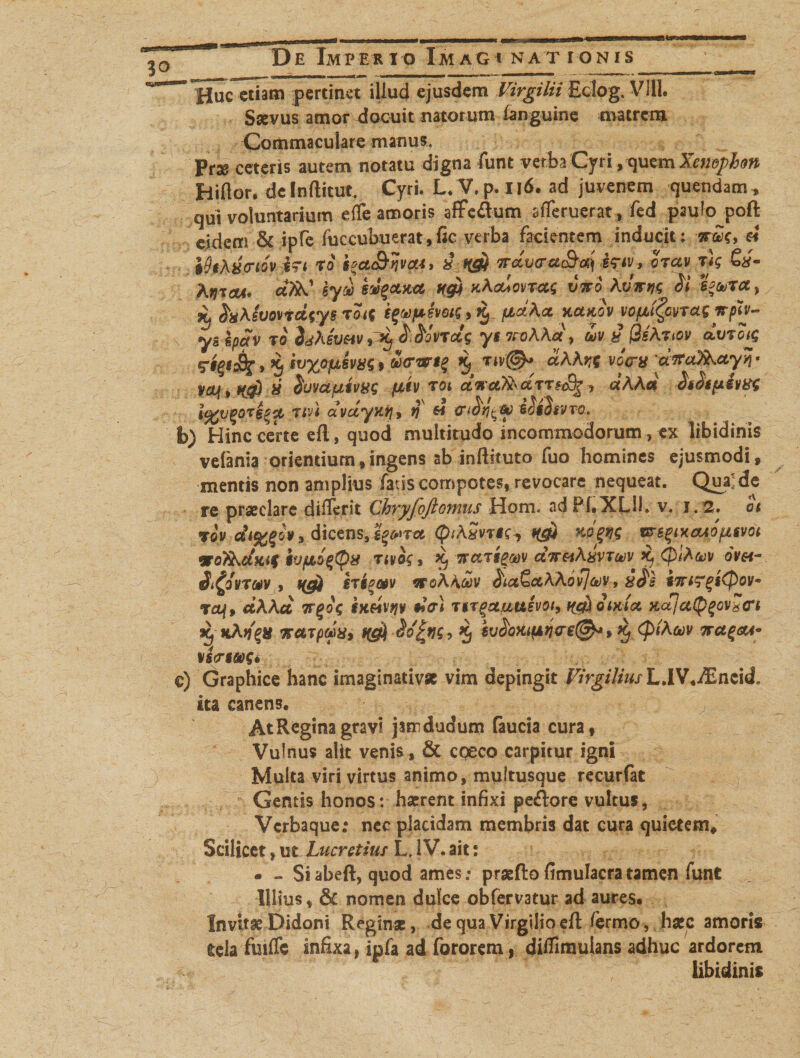 30 De Imperio Imaginationis
Huc etiam pertinet illud ejusdem Virgilii Eclog. VIII.
Sævus amor docuit natorum sanguine matrem
Commaculare manus.
Præ ceteris autem notatu digna sunt verba Cyri, quem Xenophon
Histor. de Institut. Cyri. L. V. p. 116. ad juvenem quendam,
qui voluntarium esse amoris affectum asseruerat, sed paulo post
eidem & ipse succubuerat, sic verba facientem inducit: πῶς, εἰ
ἐθελούσιόν ἐστι τὸ ἐρασθῆναι, οὐ καὶ παύσασθαι ἐστιν, ὅταν τὶς βού-
ληται. ἀλλ' ἐγὼ ἑώρακα καὶ κλαίοντας ὑπὸ λύπης δι' ἔρωτα,
καὶ δουλεύοντάςγε τοῖς ἐρωμένοις, καὶ μάλα κακὸν νομίζοντας πρίν-
γε ἐρᾶν τὸ δουλεύειν, καὶ διδόντάς γε πολλὰ, ὧν οὐ βέλτιον αὐτοῖς
στέρεσθαι, καὶ εὐχομένους, ὥσπερ καὶ τινὸς ἄλλης νόσου ἀπαλλαγῆ-
ναι, καὶ οὐ δυναμένους μέν τοι ἀπαλλάττεσθαι, ἀλλὰ δεδεμένους
ἰσχυροτέρᾳ τινὶ ἀνάγκῃ, ἢ εἰ σιδήρῳ ἐδέδεντο.
b) Hinc certe est, quod multitudo incommodorum, ex libidinis
vesania orientium, ingens ab instituto suo homines ejusmodi,
mentis non amplius satis compotes, revocare nequeat. Qua de
re præclare disserit Chrysostomus Hom. ad Ps. XLII. v. 1. 2. οἱ
τὸν αἰσχρὸν, dicens, ἔρωτα φιλοῦντες, καὶ κόρης περικαιόμενοι
πολλάκις εὐμόρφου τινὸς, καὶ πατέρων ἀπειλούντων καὶ φίλων ὀνει-
διζόντων, καὶ ἑτέρων πολλῶν διαβαλλόντων, οὐδὲ ἐπιστρέφον-
ται, ἀλλὰ πρὸς ἐκείνην εἰσὶ τετραμμένοι, καὶ οἰκία καταφρονοῦσι
καὶ κλήρου πατρῴου, καὶ δόξης, καὶ εὐδοκιμήσεως, καὶ φίλων παραι-
νέσεως.
c) Graphice hanc imaginativæ vim depingit Virgilius L. IV. Æneid.
ita canens.
At Regina gravi jamdudum saucia cura,
Vulnus alit venis, & cœco carpitur igni
Multa viri virtus animo, multusque recursat
Gentis honos: hærent infixi pectore vultus,
Verbaque: nec placidam membris dat cura quietem.
Scilicet, ut Lucretius L. IV. ait:
- - Si abest, quod ames: præsto simulacra tamen sunt
Illius, & nomen dulce observatur ad aures.
Invitæ Didoni Reginæ, de qua Virgilio est sermo, hæc amoris
tela fuisse infixa, ipsa ad sororem, dissimulans adhuc ardorem
libidinis